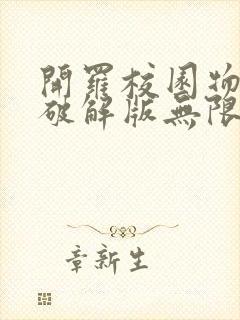 開羅校園物
破解版無限
章新生